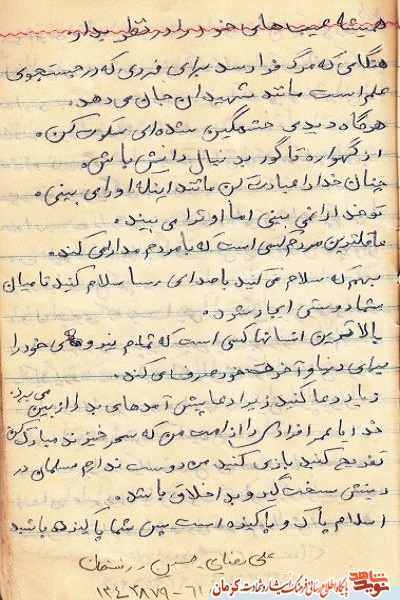 همیشه عیب های خود را در نظر بدار.
هنگامی که مرگ فرا رسد برای فردی که در جستجوی
علم است مانند شهیدان جان می دهد.
هرگاه دیدی خشمگین شده ای سکوت کن.
از گهواره تا گور به دنبال دانش باش.
چنان خدا را عبادت کن مانند اینکه او را می بینی.
تو خدا را نمی بینی اما او ترا می بیند.
عاقلترین مردم کسی است که با مردم مدارا می کند.
بهم که سلام می کنید با صدای رسا سلام کنید تا میان
شما دوستی ایجاد شود.
بالاترین انسانها کسی است که تمام نیروهای خود را
برای دنیا و آخرت خود صرف می کند.
زیاد دعا کنید زیرا دعا پیش آمدهای بد را از بین می برد.
خدایا عمر افرادی را از امت من که سحرخیزند مبارک کن
تفریح کنید بازی کنید من دوست ندارم مسلمان در
دینش سخت گیر و بد اخلاق باشد.
اسلام پاک و پاکیزه است پس شما پاکیزه باشید
علی رضایی حسن
پایگاه اطلاع رسانی فرهنگ ایثار و شهادت کرمان
نوید شاهد